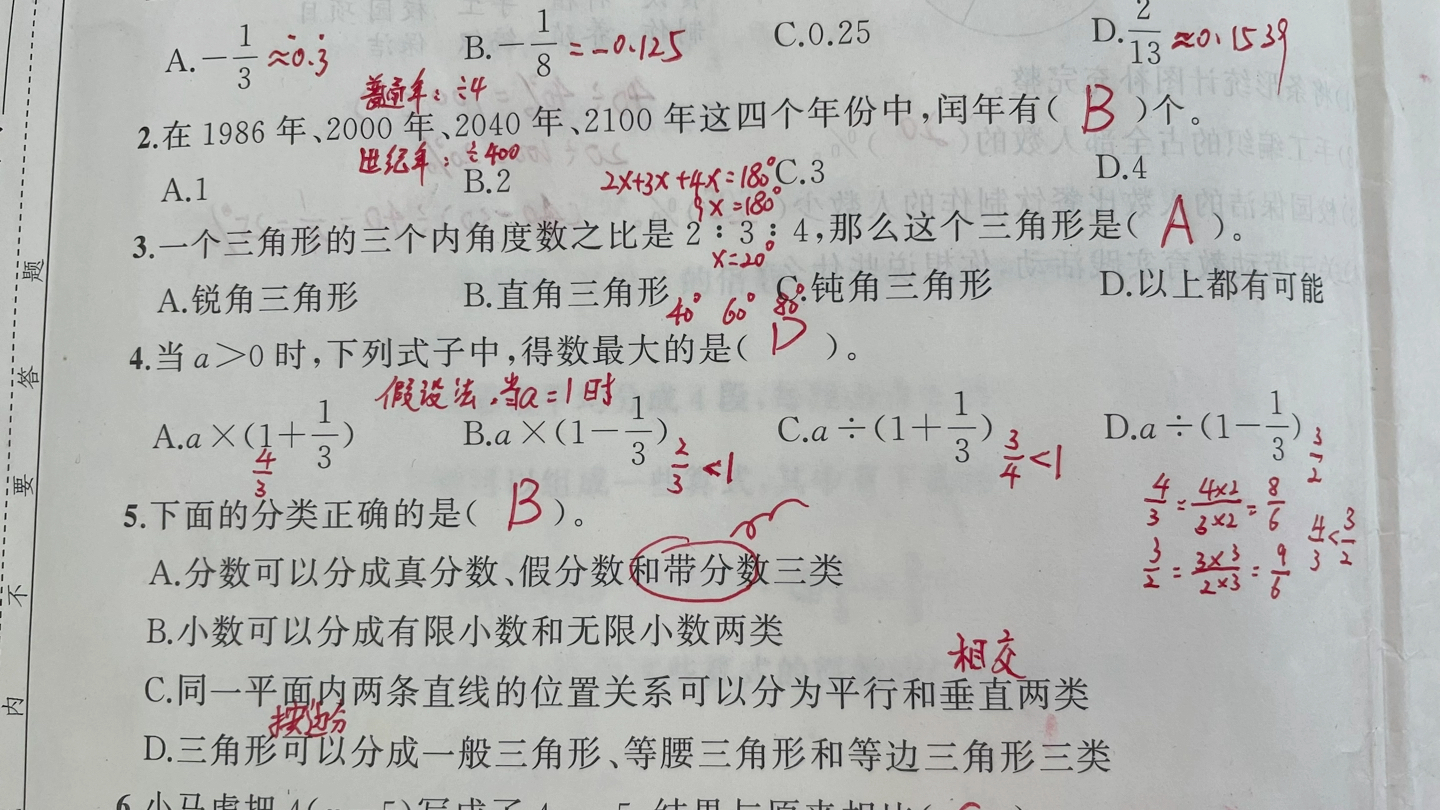 A.-1/3 ≈0.3̇ B.-1/8 =-0.125 C.0.25 D.2/13 ≈0.1539
普通年:÷4
2.在 1986 年、2000 年、2040 年、2100 年这四个年份中,闰年有( B )个。
世纪年:÷400
A.1 B.2 C.3 D.4
2x+3x+4x=180°
9x=180°
3.一个三角形的三个内角度数之比是 2∶3∶4,那么这个三角形是( A )。
x=20°
A.锐角三角形 B.直角三角形 C.钝角三角形 D.以上都有可能
40° 60° 80°
4.当 a>0 时,下列式子中,得数最大的是( D )。
假设法,当a=1时
A.a×(1+1/3) B.a×(1-1/3) C.a÷(1+1/3) D.a÷(1-1/3)
4/3 2/3<1 3/4<1 3/2
4/3=4×2/3×2=8/6
4/3<3/2
3/2=3×3/2×3=9/6
5.下面的分类正确的是( B )。
A.分数可以分成真分数、假分数和带分数三类
B.小数可以分成有限小数和无限小数两类
相交
C.同一平面内两条直线的位置关系可以分为平行和垂直两类
按边分
D.三角形可以分成一般三角形、等腰三角形和等边三角形三类
题
答
要
不
内